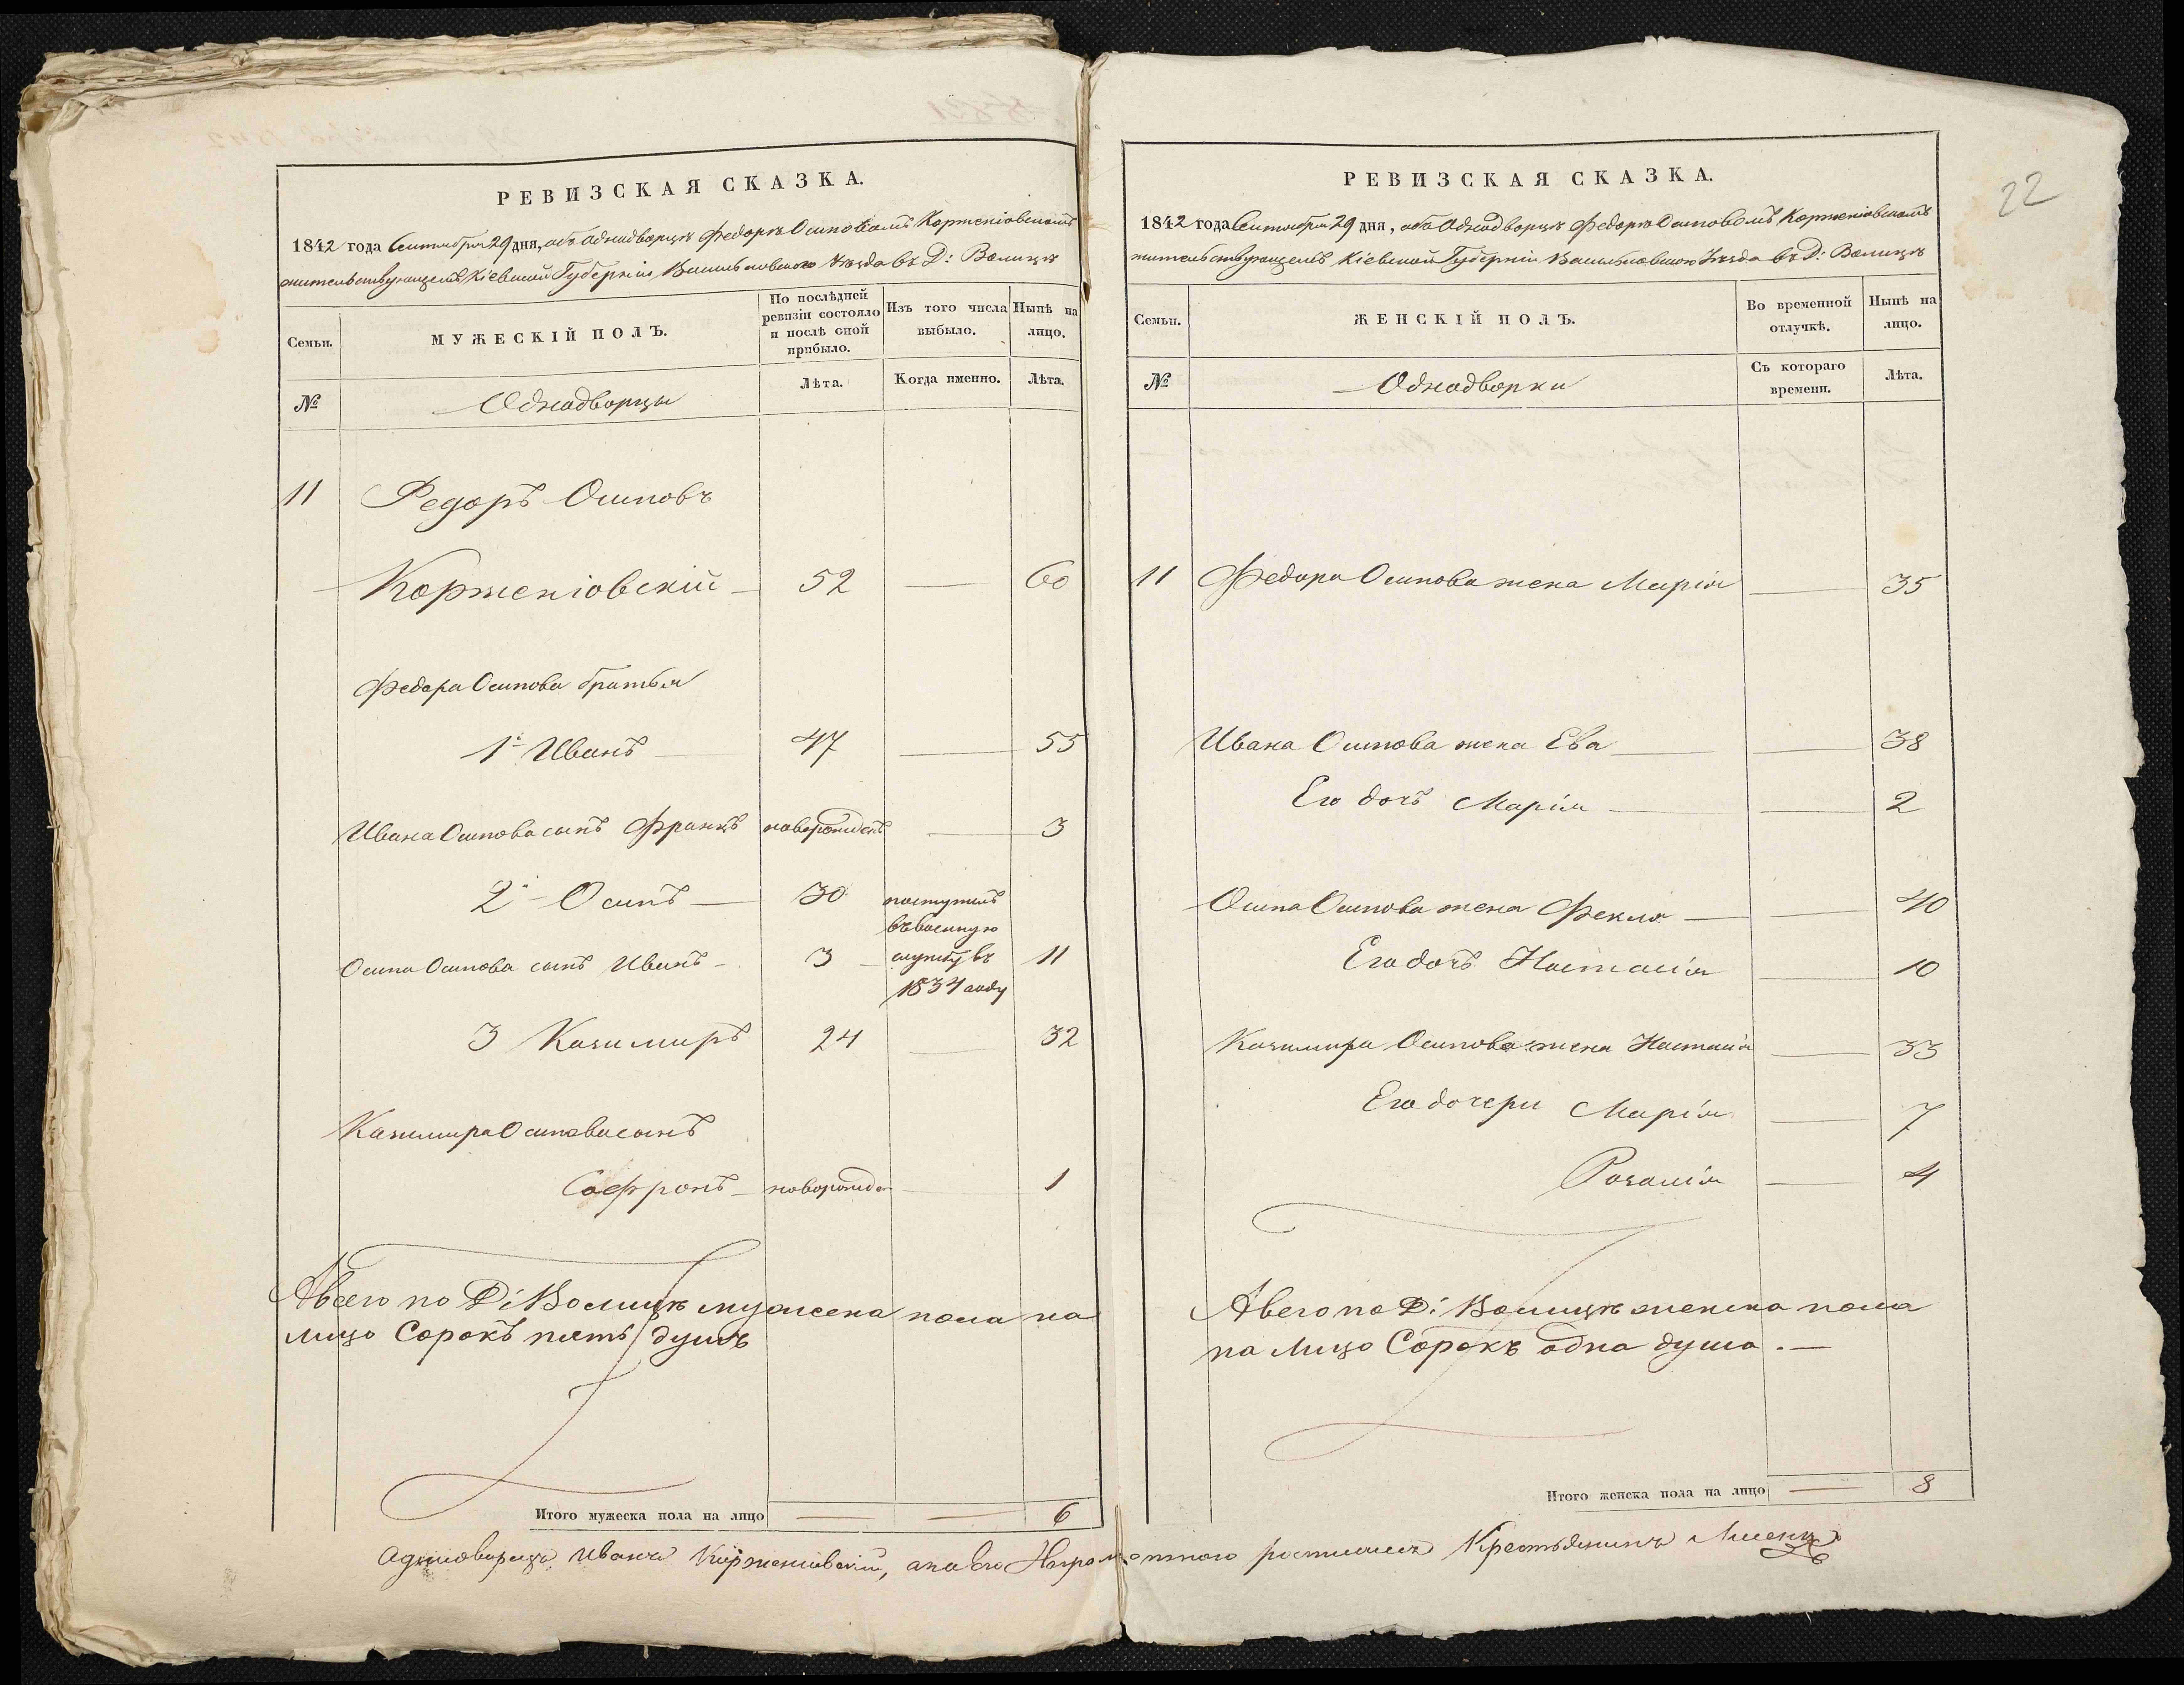 РЕВИЗСКАЯ СКАЗКА.
1842 года Сентября 29 дня, объ Однодворцѣ Федорѣ Осиповомъ Корженіовскомъ
жительствующемъ Кіевской Губерніи Васильковского Уѣзда въ Д: Волицѣ
Семьи.
МУЖЕСКІЙ ПОЛЪ.
По послѣдней ревизіи состояло и послѣ оной прибыло.
Изъ того числа выбыло.
Нынѣ на лицо.
№
Однодворцы
Лѣта.
Когда именно.
Лѣта.
11 Федоръ Осиповъ
Корженіовскій 52 — 60
Федора Осипова братья
1й Иванъ 47 — 55
Ивана Осипова сынъ Францъ новорожденъ — 3
2й Осипъ 30 поступилъ
въ военную
Осипа Осипова сынъ Иванъ 3 службу въ 11
1834 году
3 Казимиръ 24 — 32
Казимира Осипова сынъ
Софронъ новорожден — 1
А всего по Д: Волицѣ мужеска пола на
лицо Сорокъ пять душъ
Итого мужеска пола на лицо — — 6
РЕВИЗСКАЯ СКАЗКА.
1842 года Сентября 29 дня, объ Однодворцѣ Федорѣ Осиповомъ Корженіовскомъ
жительствующемъ Кіевской Губерніи Васильковского Уѣзда въ Д: Волицѣ
Семьи.
ЖЕНСКІЙ ПОЛЪ.
Во временной отлучкѣ.
Нынѣ на лицо.
№
Однодворки
Съ котораго времени.
Лѣта.
11 Федора Осипова жена Марія — 35
Ивана Осипова жена Ева — 38
Его дочъ Марія — 2
Осипа Осипова жена Фекла — 40
Его дочъ Настасія — 10
Казимира Осипова жена Настасія — 33
Его дочери Марія — 7
Розалія — 4
А всего по Д: Волицѣ женска пола
на лицо Сорокъ одна душа. —
Итого женска пола на лицо — 8
22
Однодворецъ Иванъ Корженіовскій, а за его Неграмотного росписался Крестьянинъ